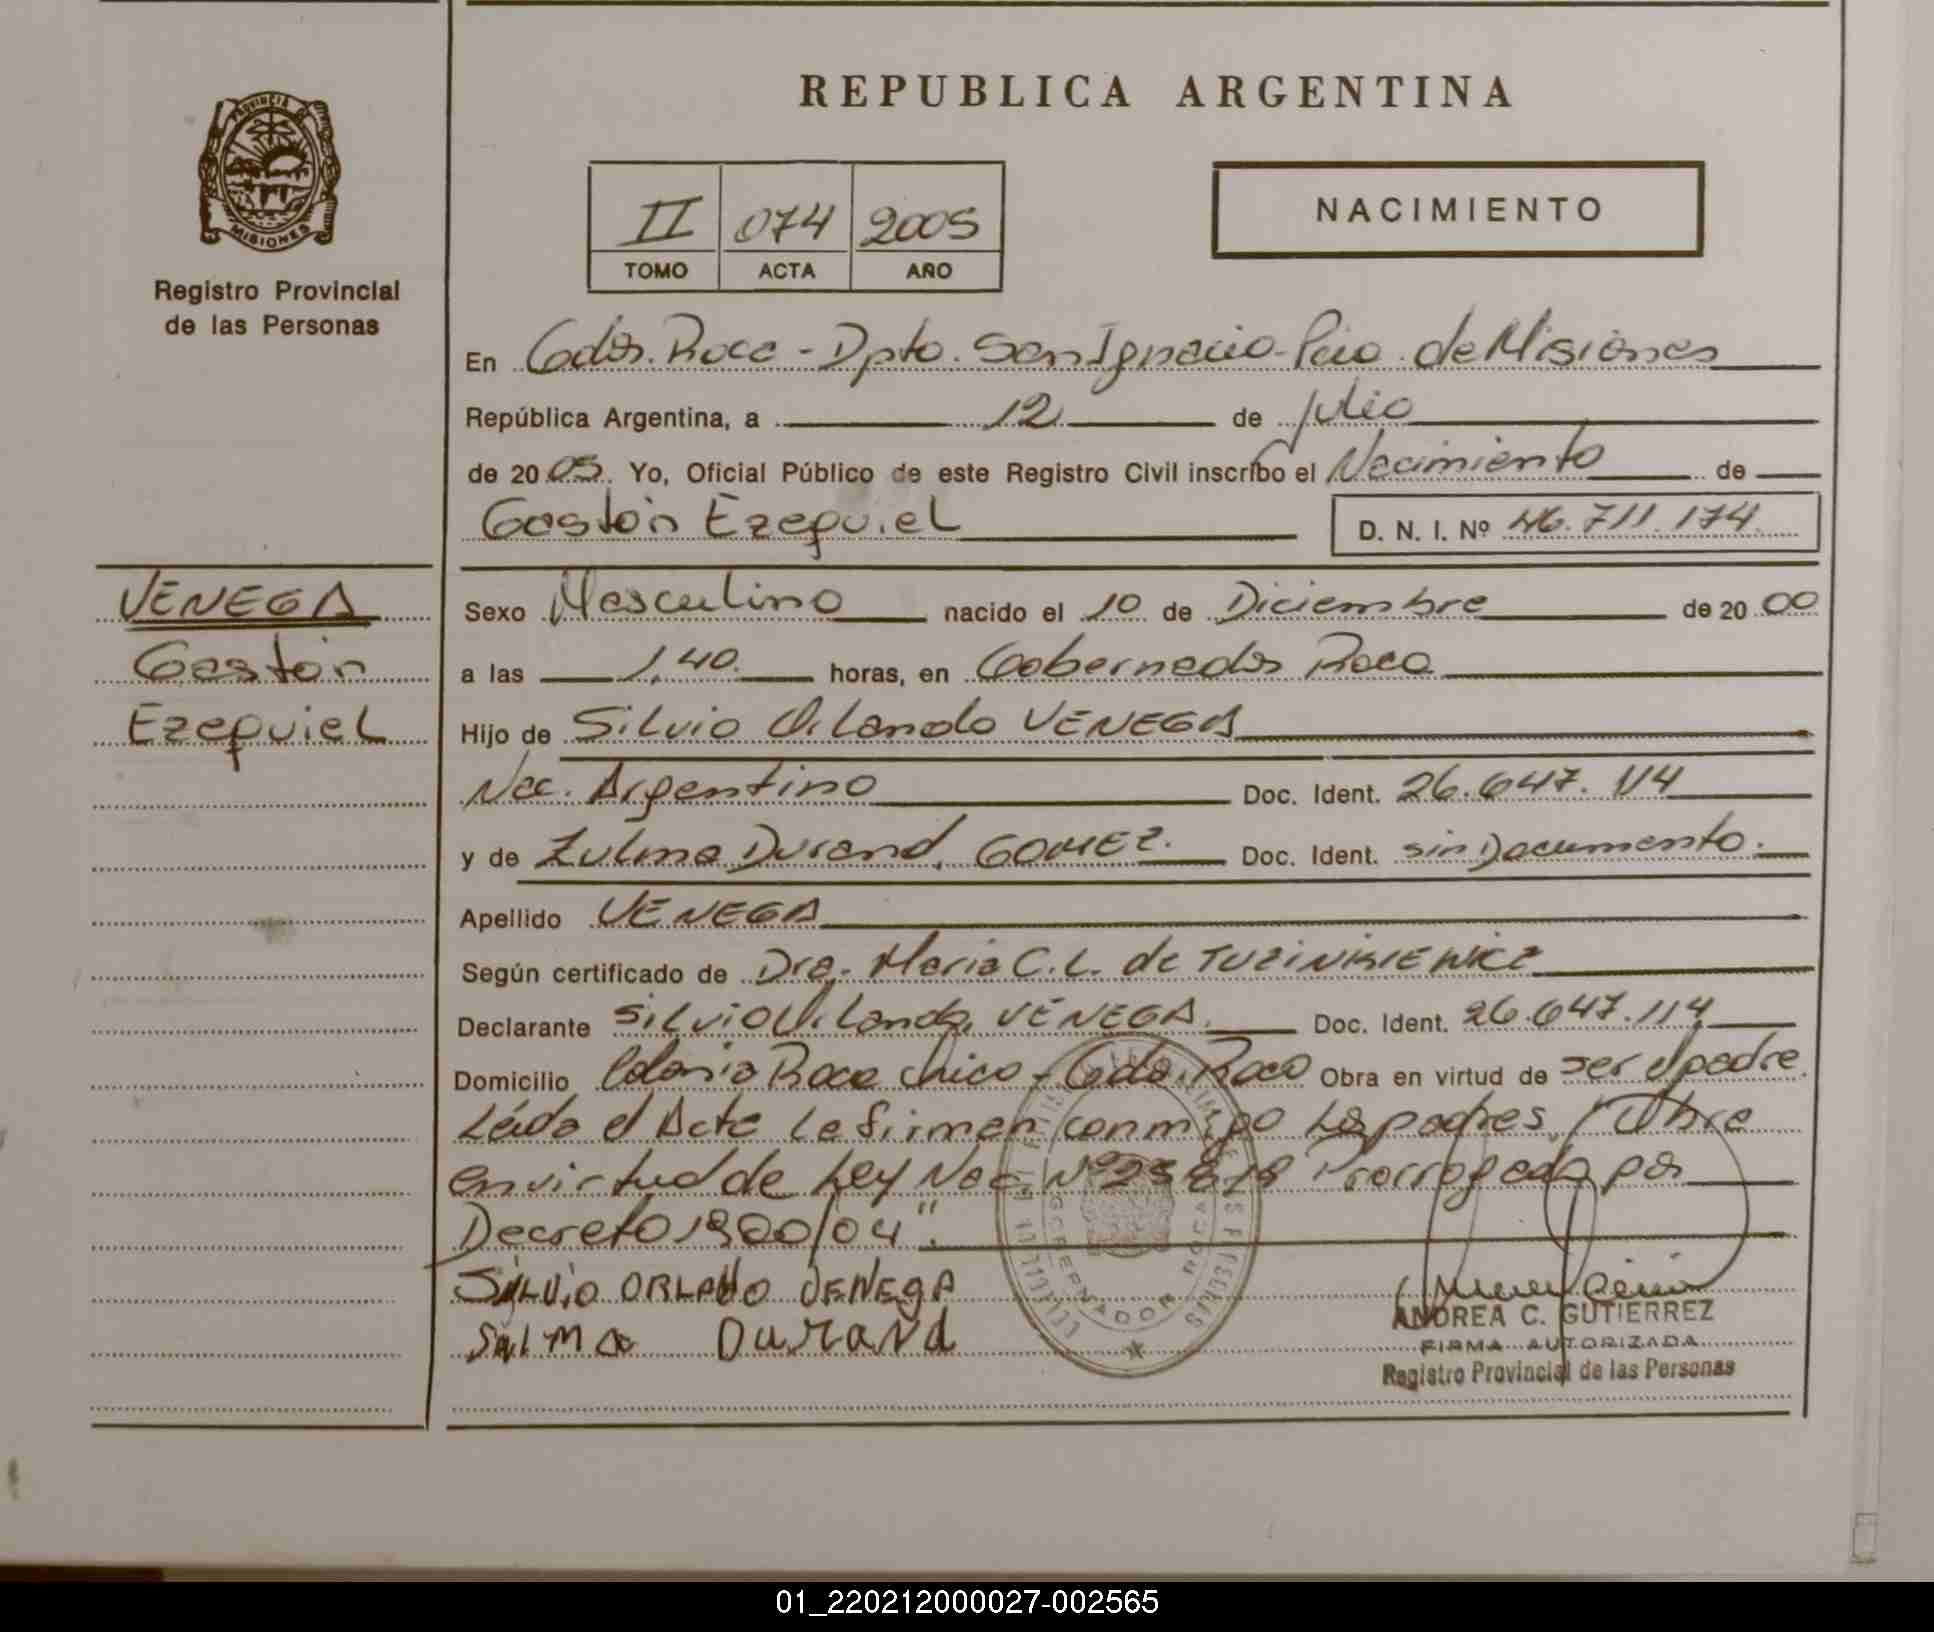 PROVINCIA
MISIONES
Registro Provincial
de las Personas
REPUBLICA ARGENTINA
II 074 2005
TOMO ACTA AÑO
NACIMIENTO
En Gdor. Roca - Dpto. San Ignacio - Pcia. de Misiones
República Argentina, a 12 de Julio
de 20 05. Yo, Oficial Público de este Registro Civil inscribo el Nacimiento de
Gastón Ezequiel D. N. I. Nº 46.711.174
VENEGA
Gastón
Ezequiel
Sexo Masculino nacido el 10 de Diciembre de 20 00
a las 1,40 horas, en Gobernador Roca
Hijo de Silvio Orlando VENEGA
Nac. Argentino Doc. Ident. 26.647.114
y de Zulma Durand, GOMEZ. Doc. Ident. sin Documento.
Apellido VENEGA
Según certificado de Dra. Maria C. L. de TUZINKIEWICZ
Declarante Silvio Orlando, VENEGA. Doc. Ident. 26.647.114
Domicilio Colonia Roca Chica - Gdor. Roca Obra en virtud de ser el padre.
Leída el Acta la firman conmigo los padres. "Obra
en virtud de Ley Nac. Nº 25819 Prorrogada por
Decreto 1900/04".
SILVIO ORLANDO VENEGA
SULMA DURAND
GOBERNADOR ROCA
ANDREA C. GUTIERREZ
FIRMA AUTORIZADA
Registro Provincial de las Personas
01_220212000027-002565